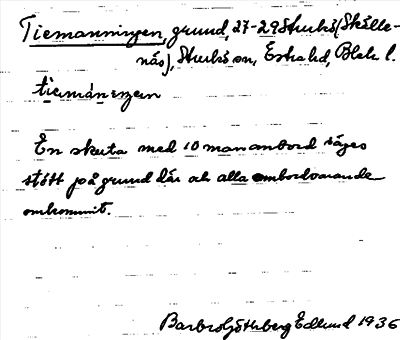 Tiemanningen, grund, 27-29 Sturkö (Skälle-
näs), Sturkö sn, Östra hd, Blek l.
tiemánengen
En skuta med 10 man ombord säges
stött på grund där och alla ombordvarande
omkommit.
Barbro Göthberg Edlund 1936